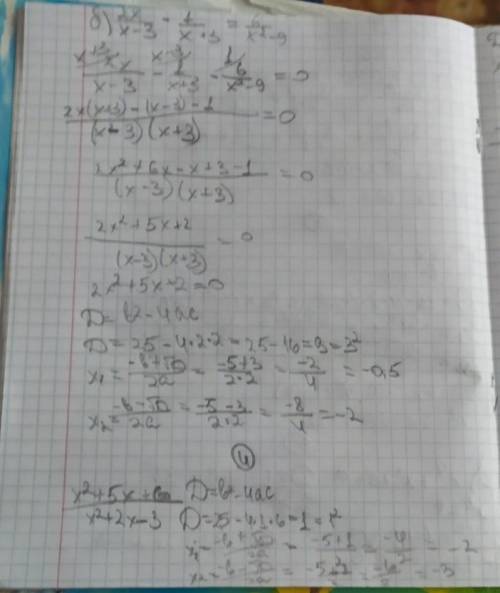 б) 2x/(x-3) - 1/(x+3) = 6/(x²-9)
x+3 x-3 1
2x/(x-3) - 1/(x+3) - 6/(x²-9) = 0
(2x(x+3)-(x-3)-1)/((x-3)(x+3)) = 0
(2x²+6x-x+3-1)/((x-3)(x+3)) = 0
(2x²+5x+2)/((x-3)(x+3)) = 0
2x²+5x+2=0
D = b²-4ac
D = 25-4·2·2 = 25-16=9=3²
x₁ = (-b+√D)/2a = (-5+3)/(2·2) = -2/4 = -0,5
x₂ = (-b-√D)/2a = (-5-3)/(2·2) = -8/4 = -2
④
(x²+5x+6)/(x²+2x-3) D=b²-4ac
D=25-4·1·6=1=1²
x₁ = (-b+√D)/2a = (-5+1)/2 = -4/2 = -2
x₂ = (-b-√D)/2a = -6/2 = -3